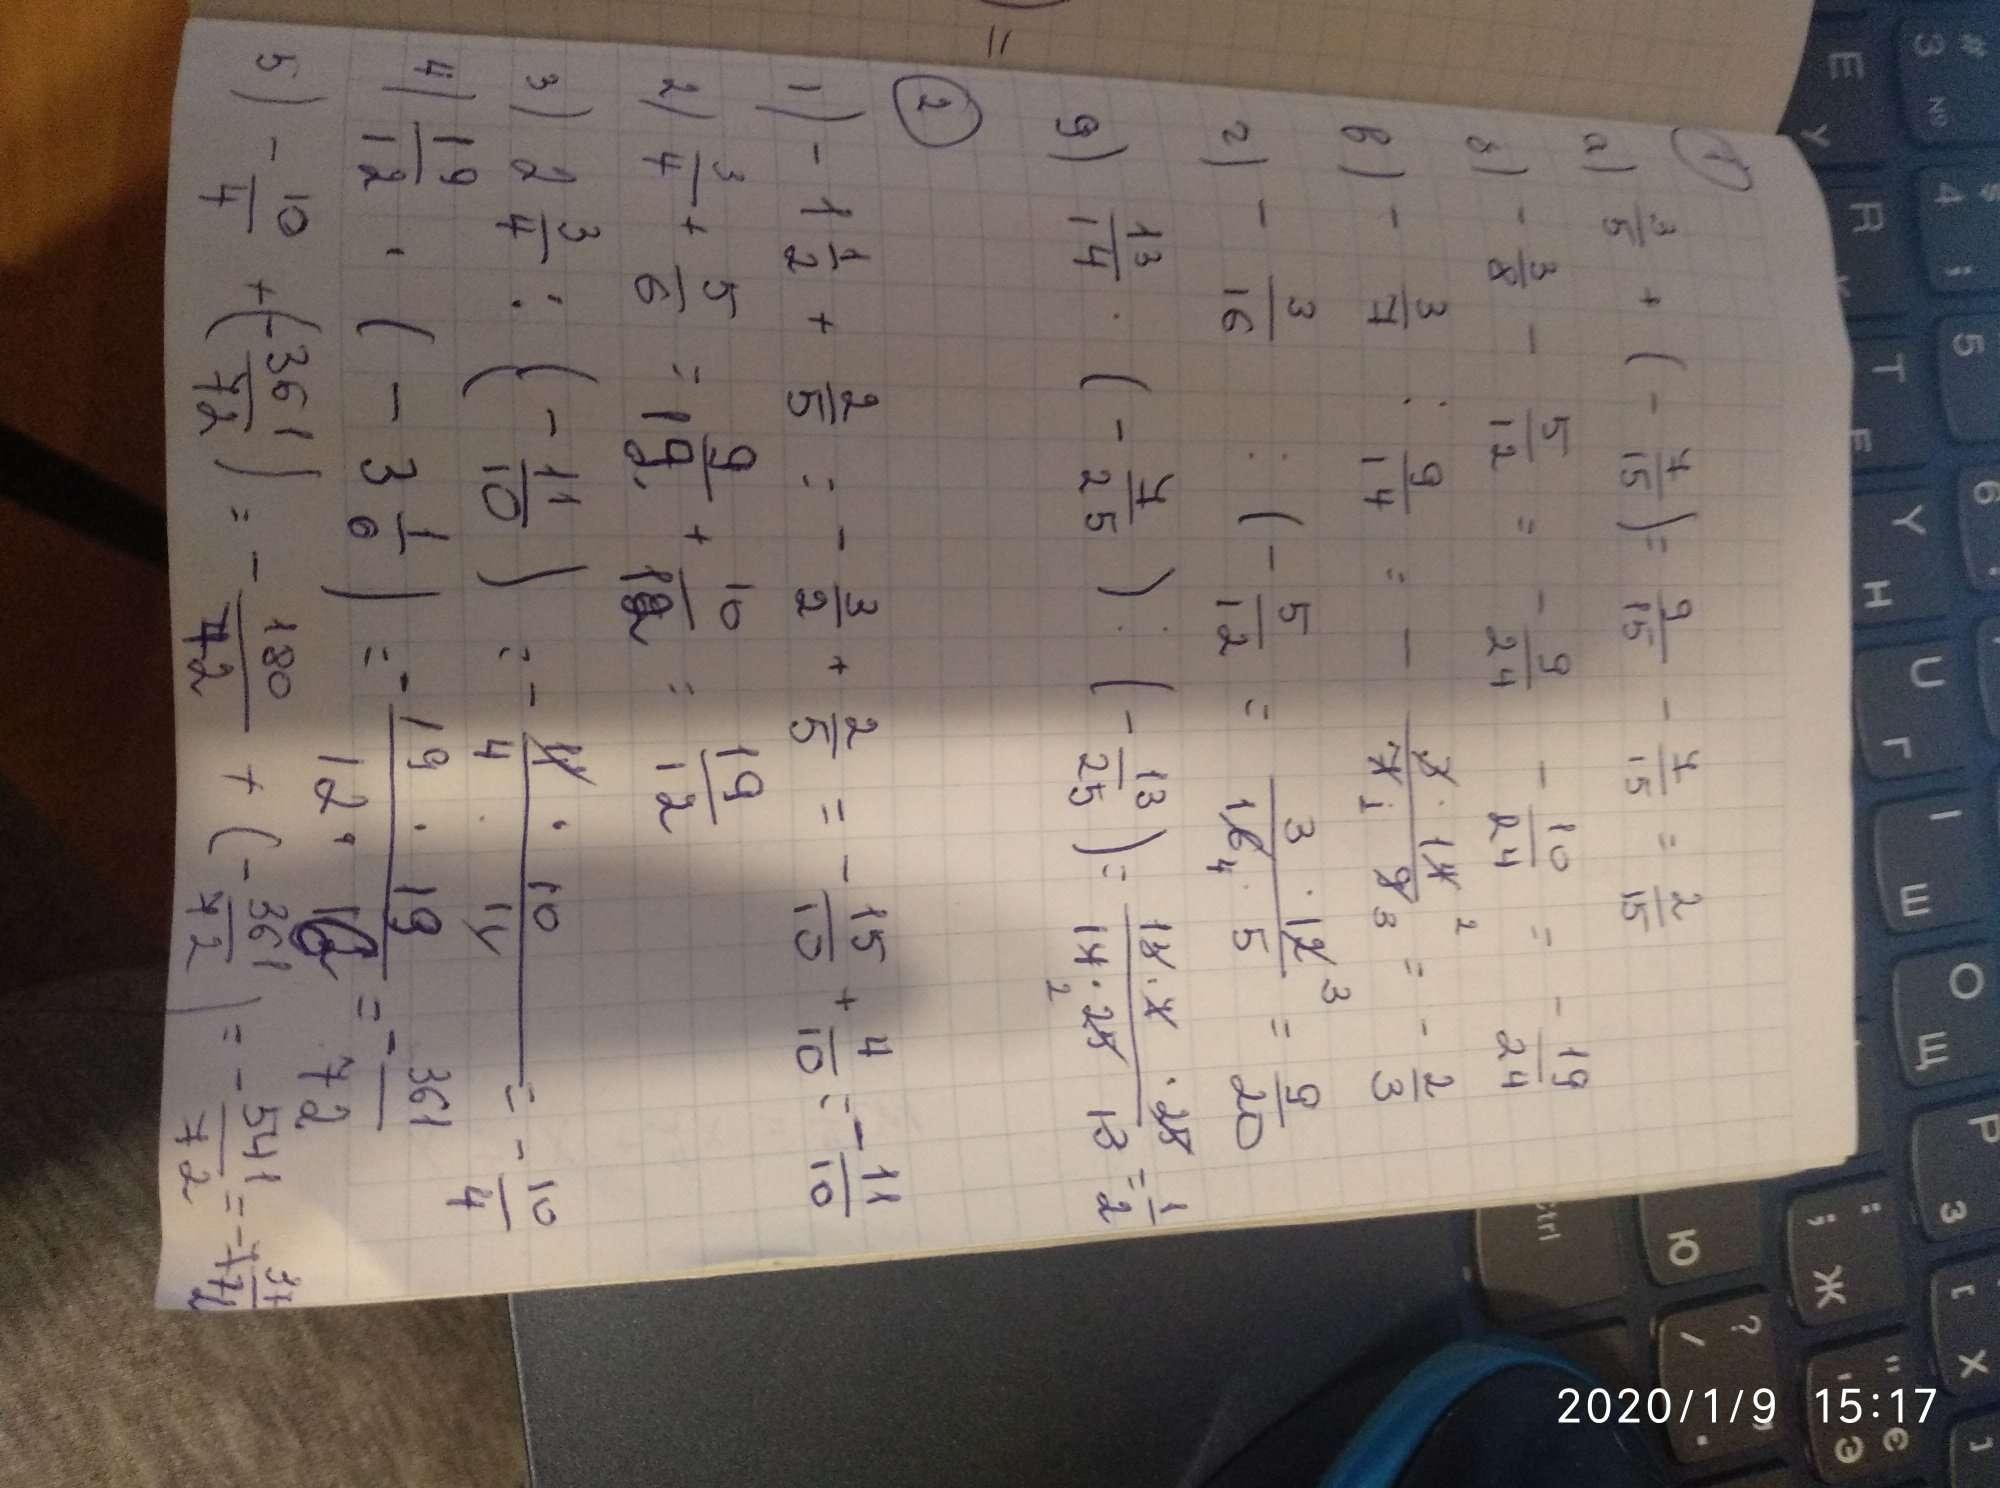 1
а) 3/5 + (- 7/15) = 9/15 - 7/15 = 2/15
б) - 3/8 - 5/12 = - 9/24 - 10/24 = - 19/24
в) - 3/7 : 9/14 = - 3 · 14 2 / 7 1 9 3 = - 2/3
г) - 3/16 : (- 5/12) = 3 · 12 3 / 16 4 · 5 = 9/20
д) 13/14 · (- 7/25) : (- 13/25) = 13 · 7 · 25 / 14 2 · 25 13 = 1/2
2
1) - 1 1/2 + 2/5 = - 3/2 + 2/5 = - 15/10 + 4/10 = - 11/10
2) 3/4 + 5/6 = 9/12 + 10/12 = 19/12
3) 2 3/4 : (- 11/10) = - 11 · 10 / 4 · 11 = - 10/4
4) 19/12 · (- 3 1/6) = - 19 · 19 / 12 · 6 = - 361/72
5) - 10/4 + (- 361/72) = - 180/72 + (- 361/72) = - 541/72 = - 7 37/72
=
# 3 №
$ 4 ;
5
6
E У
R К
T Е
Y Н
U Г
I Ш
O Щ
P З
[ Х
: ; Ж
" ' Э Є
Ю
? / .
Ctrl
2020/1/9 15:17